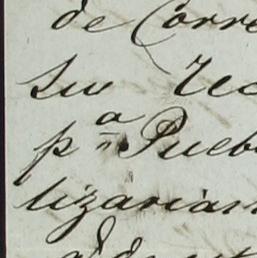 de Corre
su Rec
p.ª Pueb
lizarian